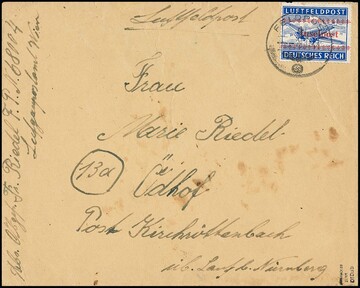 Luftfeldpost
LUFTFELDPOST
Inselpost
DEUTSCHES REICH
FELDP
Frau
Marie Riedel
13a
Ödhof
Post Kirchröttenbach
üb. Lauf b. Nürnberg
Riedel F.P.N. 68904
Luftgaupostamt Wien